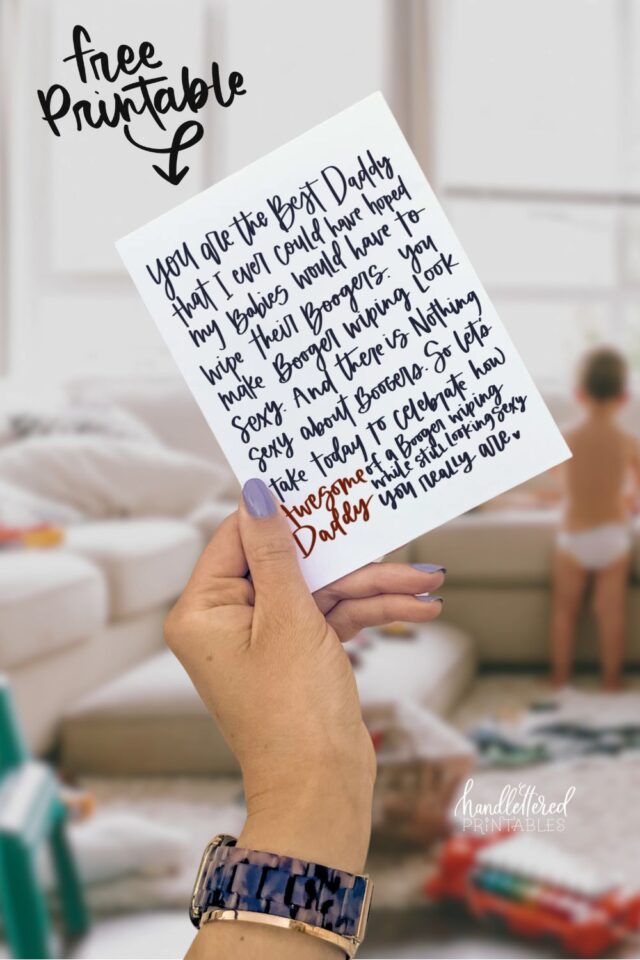 free
Printable
You are the Best Daddy
that I ever could have hoped
my Babies would have to
wipe their Boogers. You
make Booger wiping Look
Sexy. And there is Nothing
Sexy about Boogers. So let's
take today to celebrate how
Awesome of a Booger wiping
Daddy while still looking sexy
you really are.
handlettered
PRINTABLES